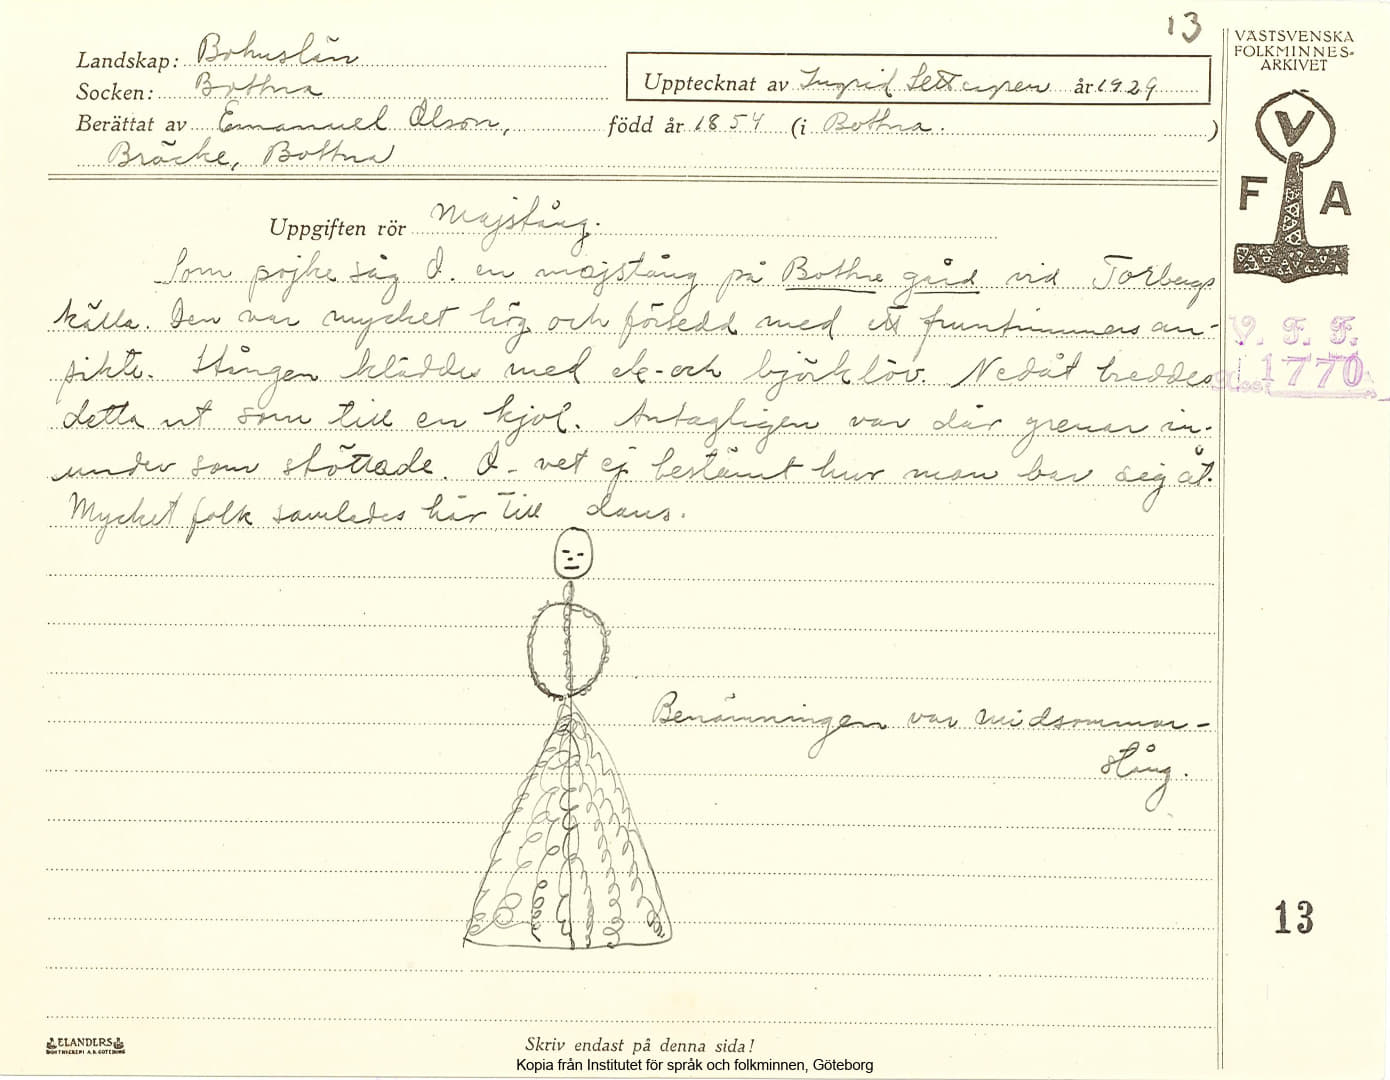 13
Landskap: Bohuslän
Socken: Bottna
Upptecknat av Ingrid år 1929
Berättat av Emanuel Olson, född år 1854 (i Bottna. )
Bräcke, Bottna
VÄSTSVENSKA
FOLKMINNES-
ARKIVET
V
F A
Uppgiften rör Majstång.
Som pojke såg O. en majstång på Bottna gård vid Torbergs
källa. Den var mycket hög och försedd med ett fruntimmersan-
sikte. Stången kläddes med ek- och björklöv. Nedåt breddes
detta ut som till en kjol. Antagligen var där grenar in-
under som stöttade. O- vet ej bestämt hur man bar sig åt.
Mycket folk samlades här till dans.
V. F. F.
1770
Benämningen var midsommar-
stång.
13
ELANDERS
BOKTRYCKERI A.B. GÖTEBORG
Skriv endast på denna sida!
Kopia från Institutet för språk och folkminnen, Göteborg